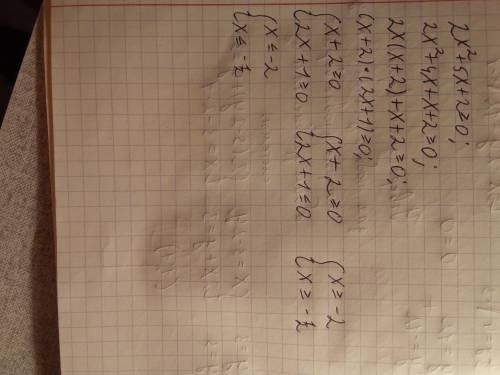 2x²+5x+2≥0;
2x²+4x+x+2≥0;
2x(x+2)+x+2≥0;
(x+2)·(2x+1)≥0;
{x+2≥0 {x+2≥0 {x≥-2
{2x+1≥0 {2x+1≤0 {x≥-½
{x≤-2
{x≤-½